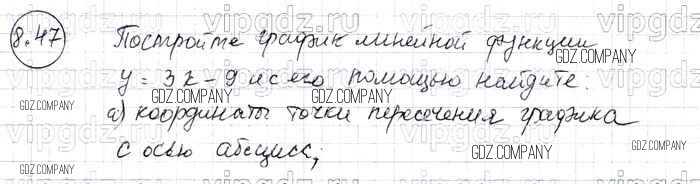 8.47 Постройте график линейной функции
y = 3x - 9 и с его помощью найдите:
а) координаты точки пересечения графика
с осью абсцисс;
vipgdz.ru
GDZ.COMPANY